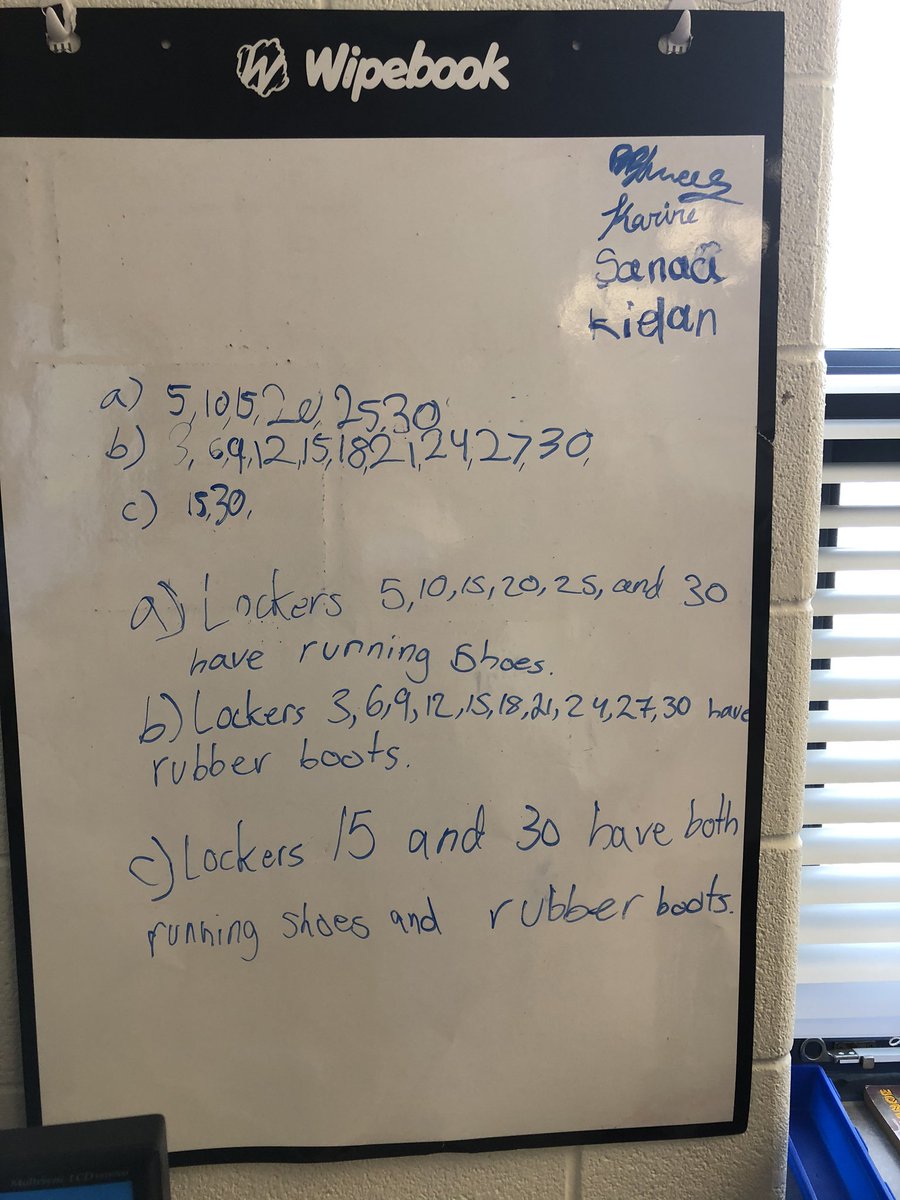 Wipebook
Karine
Sanaa
Kielan
a) 5,10,15,20,25,30
b) 3,6,9,12,15,18,21,24,27,30,
c) 15,30,
a) Lockers 5,10,15,20,25, and 30
have running shoes.
b) Lockers 3,6,9,12,15,18,21,24,27,30 have
rubber boots.
c) Lockers 15 and 30 have both
running shoes and rubber boots.